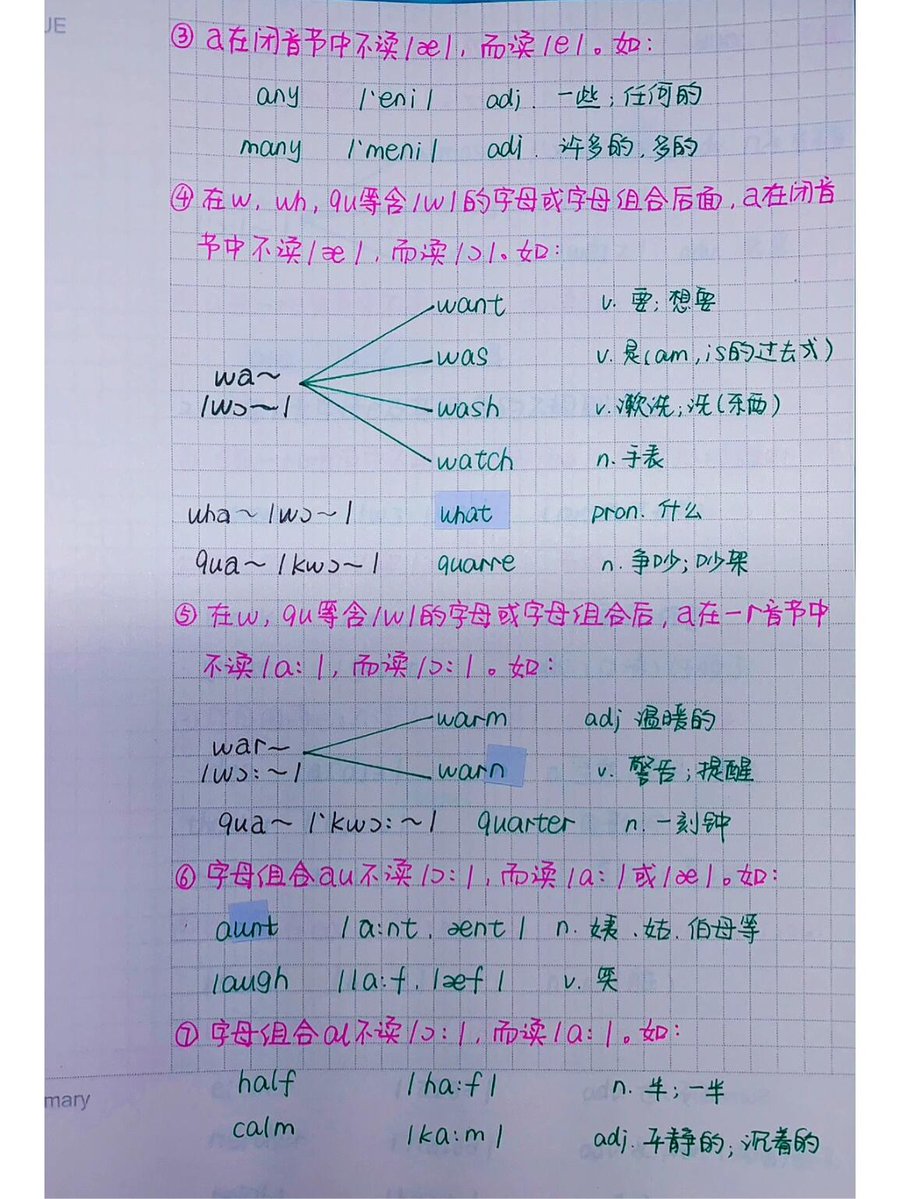 UE
③ a在闭音节中不读/æ/，而读/e/。如：
any /ˋeni/ adj. 一些；任何的
many /ˋmeni/ adj. 许多的，多的
④ 在w，wh，qu等含/w/的字母或字母组合后面，a在闭音
节中不读/æ/，而读/ɔ/。如：
want v. 要；想要
was v. 是(am，is的过去式)
wa～
/wɔ～/
wash v. 漱洗；洗(东西)
watch n. 手表
wha～/wɔ～/ what pron. 什么
qua～/kwɔ～/ quarre n. 争吵；吵架
⑤ 在w，qu等含/w/的字母或字母组合后，a在一r音节中
不读/a:/，而读/ɔ:/。如：
warm adj 温暖的
war～
/wɔ:～/
warn v. 警告；提醒
qua～/ˋkwɔ:～/ quarter n. 一刻钟
⑥ 字母组合au不读/ɔ:/，而读/a:/或/æ/。如：
aunt /a:nt，ænt/ n. 姨、姑、伯母等
laugh /la:f，læf/ v. 笑
⑦ 字母组合al不读/ɔ:/，而读/a:/。如：
half /ha:f/ n. 半；一半
mary
calm /ka:m/ adj. 平静的；沉着的